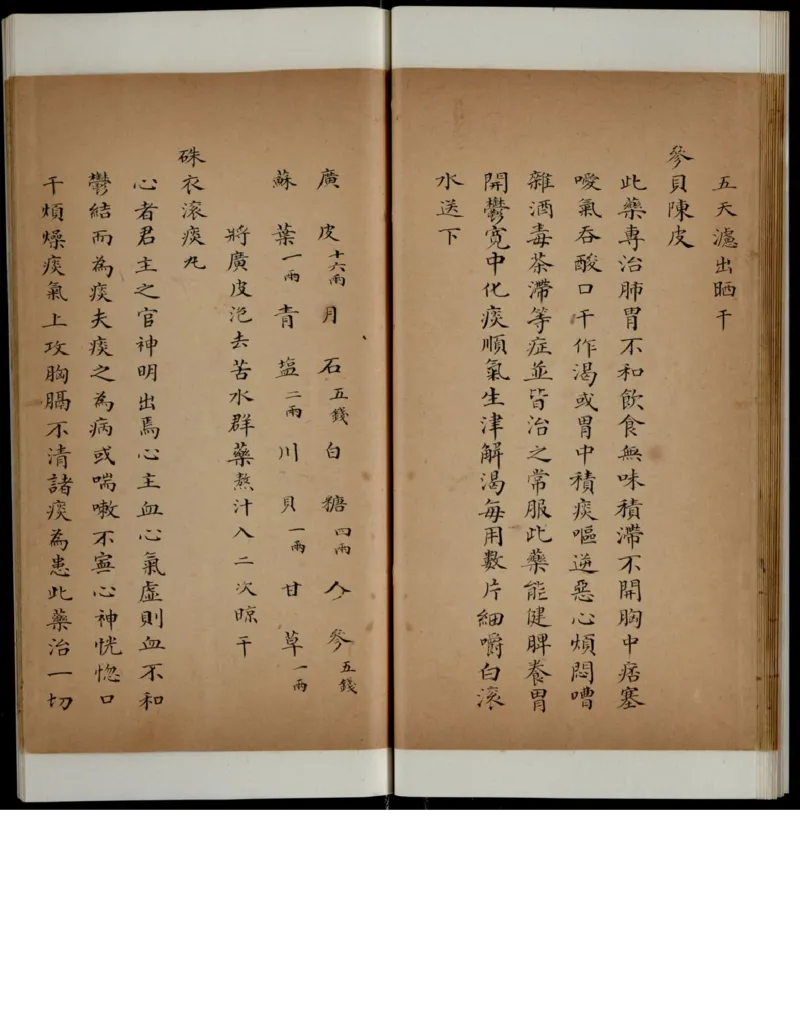 五天濾出晒干
參貝陳皮
此藥專治肺胃不和飲食無味積滯不開胸中痞塞
噯氣吞酸口干作渴或胃中積痰嘔逆惡心煩悶嘈
雜酒毒茶滯等症並皆治之常服此藥能健脾養胃
開鬱寬中化痰順氣生津解渴每用數片細嚼白滾
水送下
廣皮十六兩月石五錢白糖四兩人參五錢
蘇葉一兩青塩二兩川貝一兩甘草一兩
將廣皮泡去苦水群藥熬汁入二次晾干
硃衣滾痰丸
心者君主之官神明出焉心主血心氣虛則血不和
鬱結而為痰夫痰之為病或喘嗽不寧心神恍惚口
干煩燥痰氣上攻胸膈不清諸痰為患此藥治一切